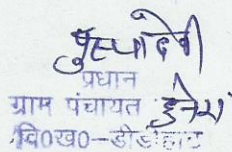 पुष्पादेवी
प्रधान
ग्राम पंचायत
वि०ख०-डीडीहाट